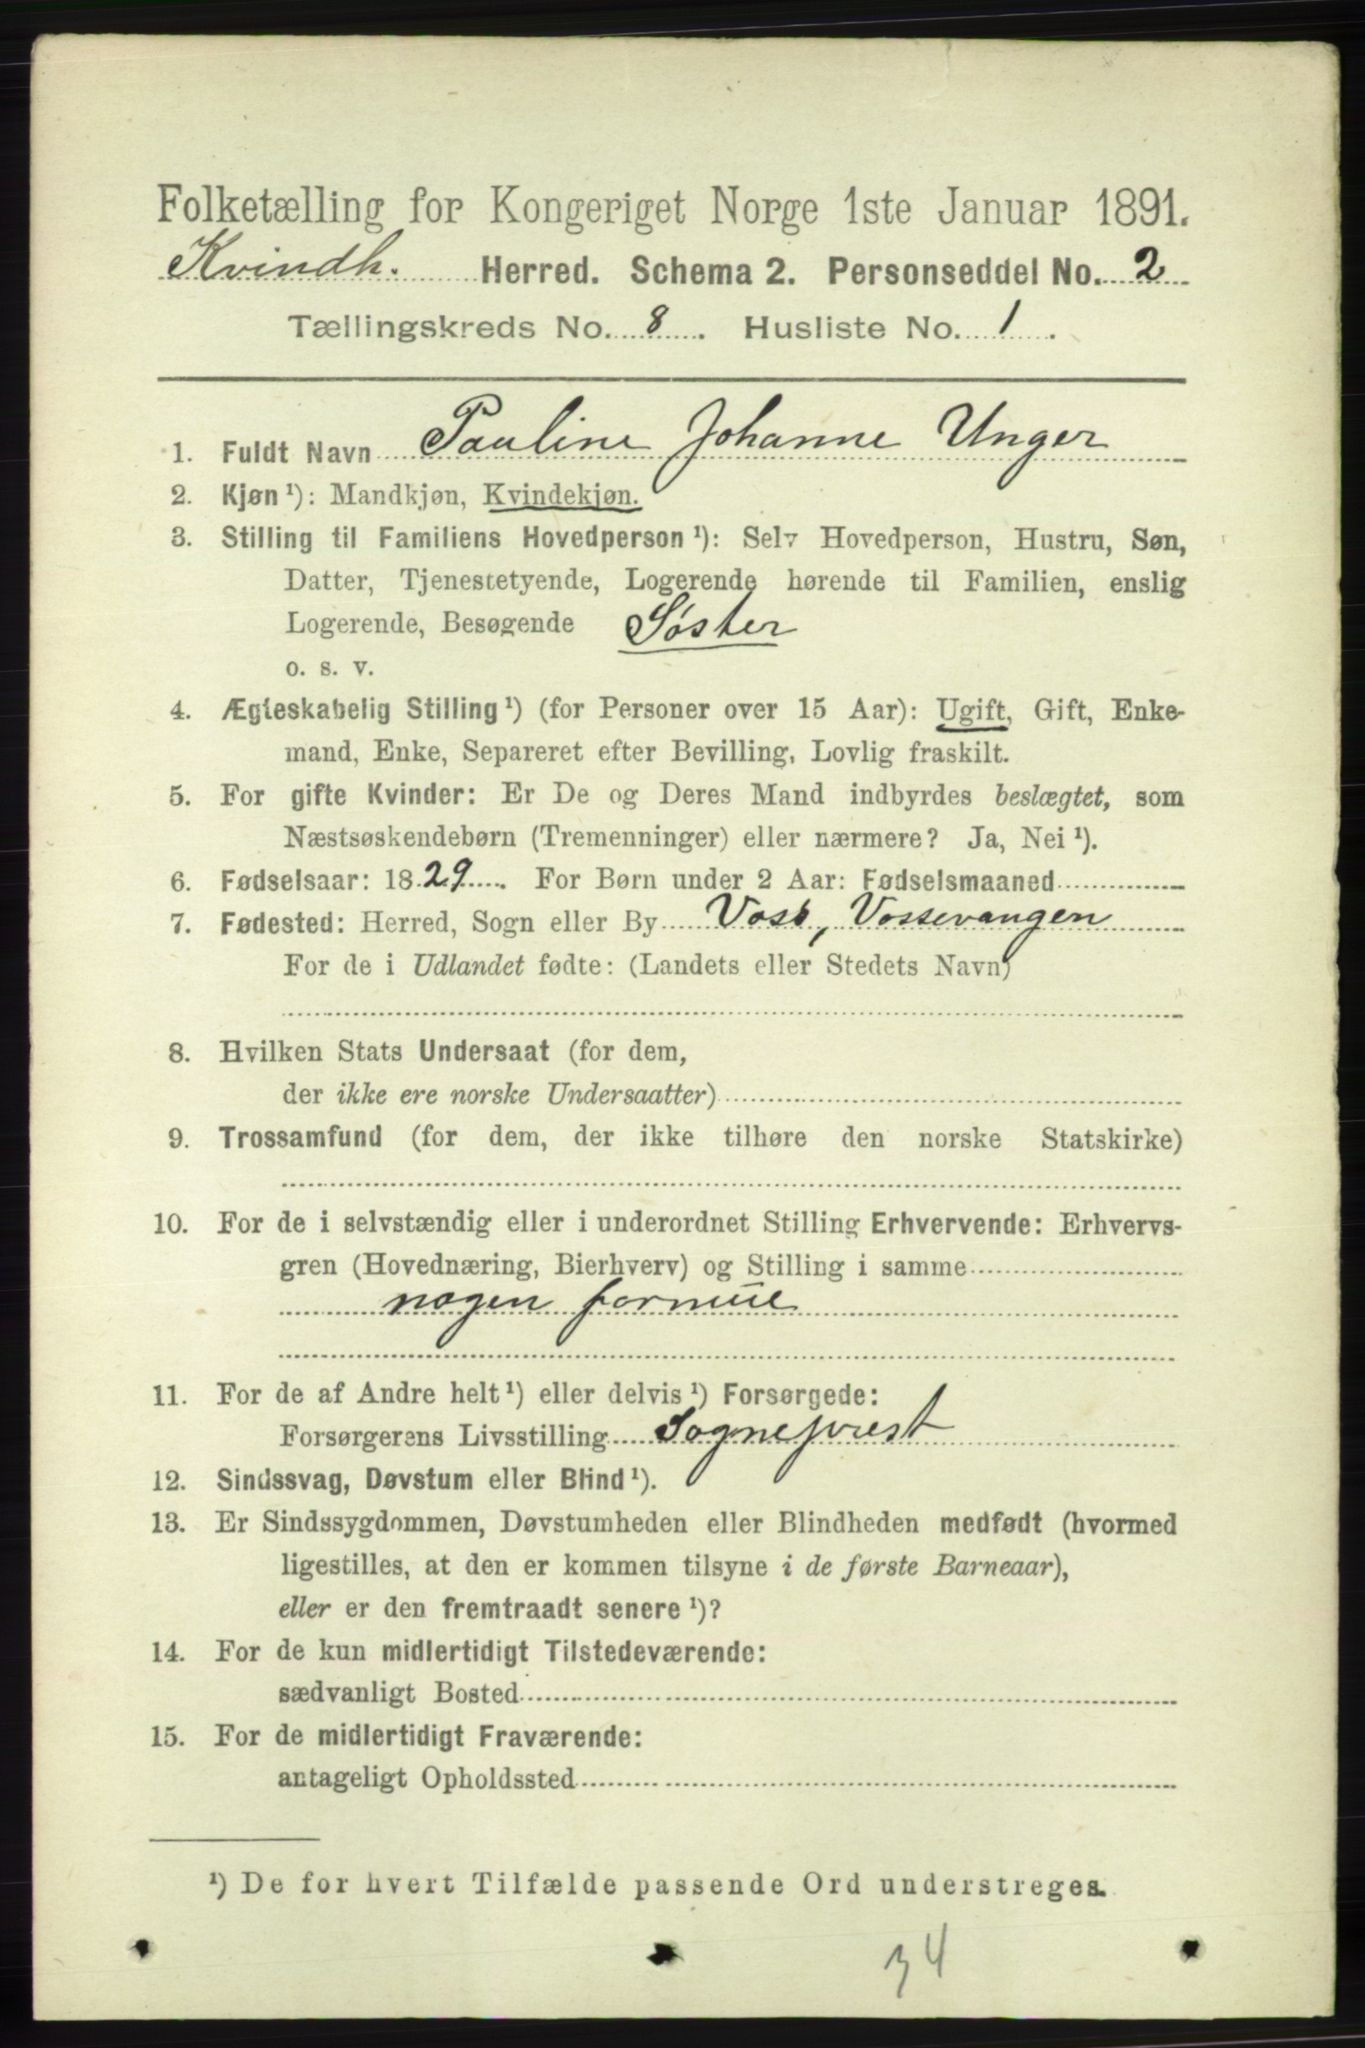 Folketælling for Kongeriget Norge 1ste Januar 1891.
Kvindh. Herred. Schema 2. Personseddel No. 2
Tællingskreds No. 8. Husliste No. 1.
1. Fuldt Navn Pauline Johanne Unger
2. Kjøn¹): Mandkjøn, Kvindekjøn.
3. Stilling til Familiens Hovedperson¹): Selv Hovedperson, Hustru, Søn,
Datter, Tjenestetyende, Logerende hørende til Familien, enslig
Logerende, Besøgende Søster
o. s. v.
4. Ægteskabelig Stilling¹) (for Personer over 15 Aar): Ugift, Gift, Enke-
mand, Enke, Separeret efter Bevilling, Lovlig fraskilt.
5. For gifte Kvinder: Er De og Deres Mand indbyrdes beslægtet, som
Næstsøskendebørn (Tremenninger) eller nærmere? Ja, Nei¹).
6. Fødselsaar: 1829. For Børn under 2 Aar: Fødselsmaaned
7. Fødested: Herred, Sogn eller By Voss, Vossevangen
For de i Udlandet fødte: (Landets eller Stedets Navn)
8. Hvilken Stats Undersaat (for dem,
der ikke ere norske Undersaatter)
9. Trossamfund (for dem, der ikke tilhøre den norske Statskirke)
10. For de i selvstændig eller i underordnet Stilling Erhvervende: Erhvervs-
gren (Hovednæring, Bierhverv) og Stilling i samme
nogen formue
11. For de af Andre helt¹) eller delvis¹) Forsørgede:
Forsørgerens Livsstilling Sogneprest
12. Sindssvag, Døvstum eller Blind¹).
13. Er Sindssygdommen, Døvstumheden eller Blindheden medfødt (hvormed
ligestilles, at den er kommen tilsyne i de første Barneaar),
eller er den fremtraadt senere¹)?
14. For de kun midlertidigt Tilstedeværende:
sædvanligt Bosted
15. For de midlertidigt Fraværende:
antageligt Opholdssted
¹) De for hvert Tilfælde passende Ord understreges.
34